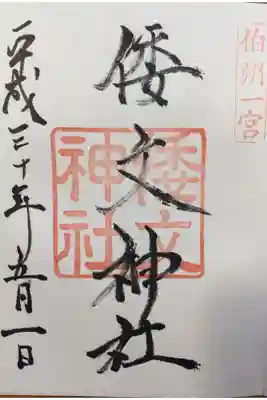 伯州一宮
倭文神社
倭文神社
平成三十年五月一日